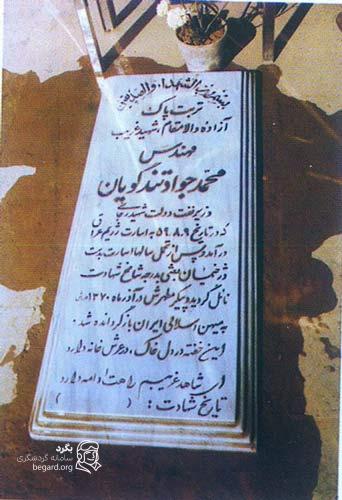 بسم رب الشهداء والصدیقین
تربت پاک
آزاده والامقام، شهید غریب
مهندس
محمد جواد تندگویان
وزیر نفت دولت شهید رجائی
که در تاریخ ۵۹،۸،۹ به اسارت رژیم عراق
درآمد و پس از تحمل سالها اسارت بدست
دژخیمان بعثی بدرجه شامخ شهادت
نائل گردید و پیکر مطهرش در آذر ماه ۱۳۷۰
به میهن اسلامی ایران بازگردانده شد.
این خفته در دل خاک، در عرش خانه دارد
این شاهد غریبم راهت ادامه دارد
تاریخ شهادت: ( )
بگرد
سامانه گردشگری
begard.org